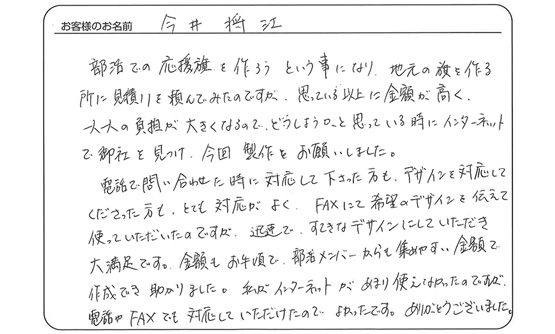 お客様のお名前 今井 将江
部活での応援旗を作ろうという事になり、地元の旗を作る
所に見積りを頼んでみたのですが、思っている以上に金額が高く、
一人一人の負担が大きくなるので、どうしようかと思っている時にインターネット
で御社を見つけ、今回製作をお願いしました。
電話で問い合わせた時に対応して下さった方も、デザインを対応して
くださった方も、とても対応がよく、FAXにて希望のデザインを伝えて
使っていただいたのですが、迅速で、すてきなデザインにしていただき
大満足です。金額もお手頃で、部活メンバーからも集めやすい金額で
作成でき助かりました。私がインターネットがあまり使えなかったのですが、
電話やFAXでも対応していただけたのでよかったです。ありがとうございました。